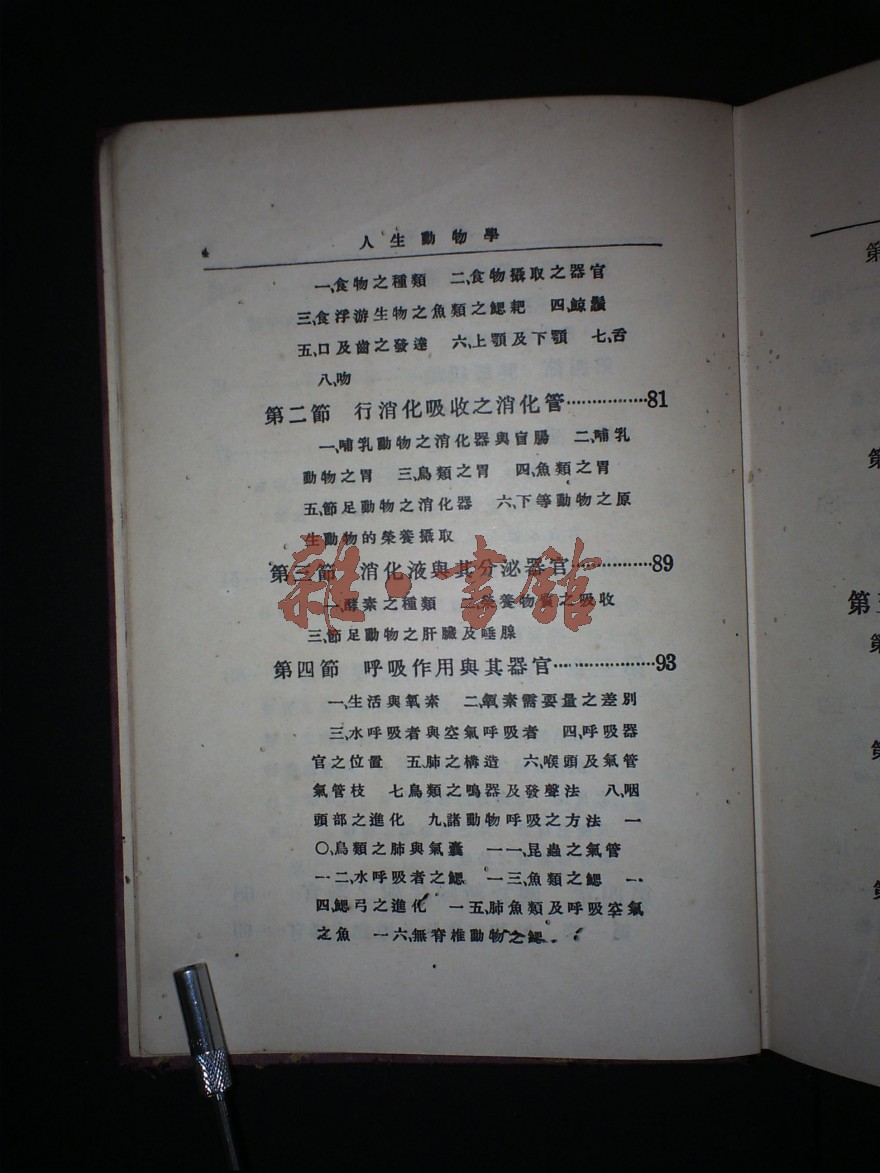 4
人生動物學
一、食物之種類 二、食物攝取之器官
三、食浮游生物之魚類之鰓耙 四、鯨鬚
五、口及齒之發達 六、上顎及下顎 七、舌
八、吻
第二節 行消化吸收之消化管……………81
一、哺乳動物之消化器與盲腸 二、哺乳
動物之胃 三、鳥類之胃 四、魚類之胃
五、節足動物之消化器 六、下等動物之原
生動物的榮養攝取
第三節 消化液與其分泌器官……………89
一、酵素之種類 二、榮養物質之吸收
三、節足動物之肝臟及唾腺
第四節 呼吸作用與其器官………………93
一、生活與氧素 二、氧素需要量之差別
三、水呼吸者與空氣呼吸者 四、呼吸器
官之位置 五、肺之構造 六、喉頭及氣管
氣管枝 七、鳥類之鳴器及發聲法 八、咽
頭部之進化 九、諸動物呼吸之方法 一
〇、鳥類之肺與氣囊 一一、昆蟲之氣管
一二、水呼吸者之鰓 一三、魚類之鰓 一
四、鰓弓之進化 一五、肺魚類及呼吸空氣
之魚 一六、無脊椎動物之鰓
雜·書館
第
第
第五
第
第
第